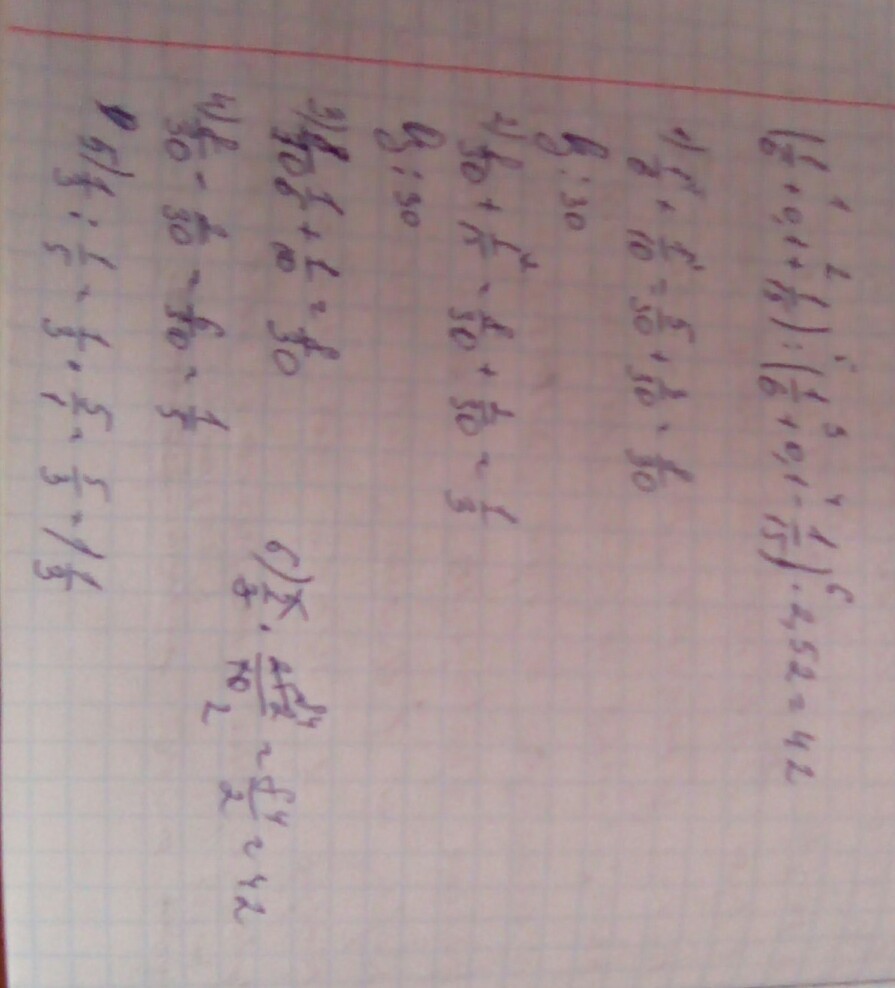 (1/6 + 0,1 + 1/15) : (1/6 + 0,1 - 1/15) · 2,52 = 42
1) 1/6 + 1/10 = 5/30 + 3/30 = 8/30
: 30
2) 8/30 + 1/15 = 8/30 + 2/30 = 1/3
: 30
3) 1/6 + 1/10 = 8/30
4) 8/30 - 2/30 = 6/30 = 1/5
5) 1/3 : 1/5 = 1/3 · 5/1 = 5/3 = 1
6) 5/3 · 252/10 = 84/2 = 42